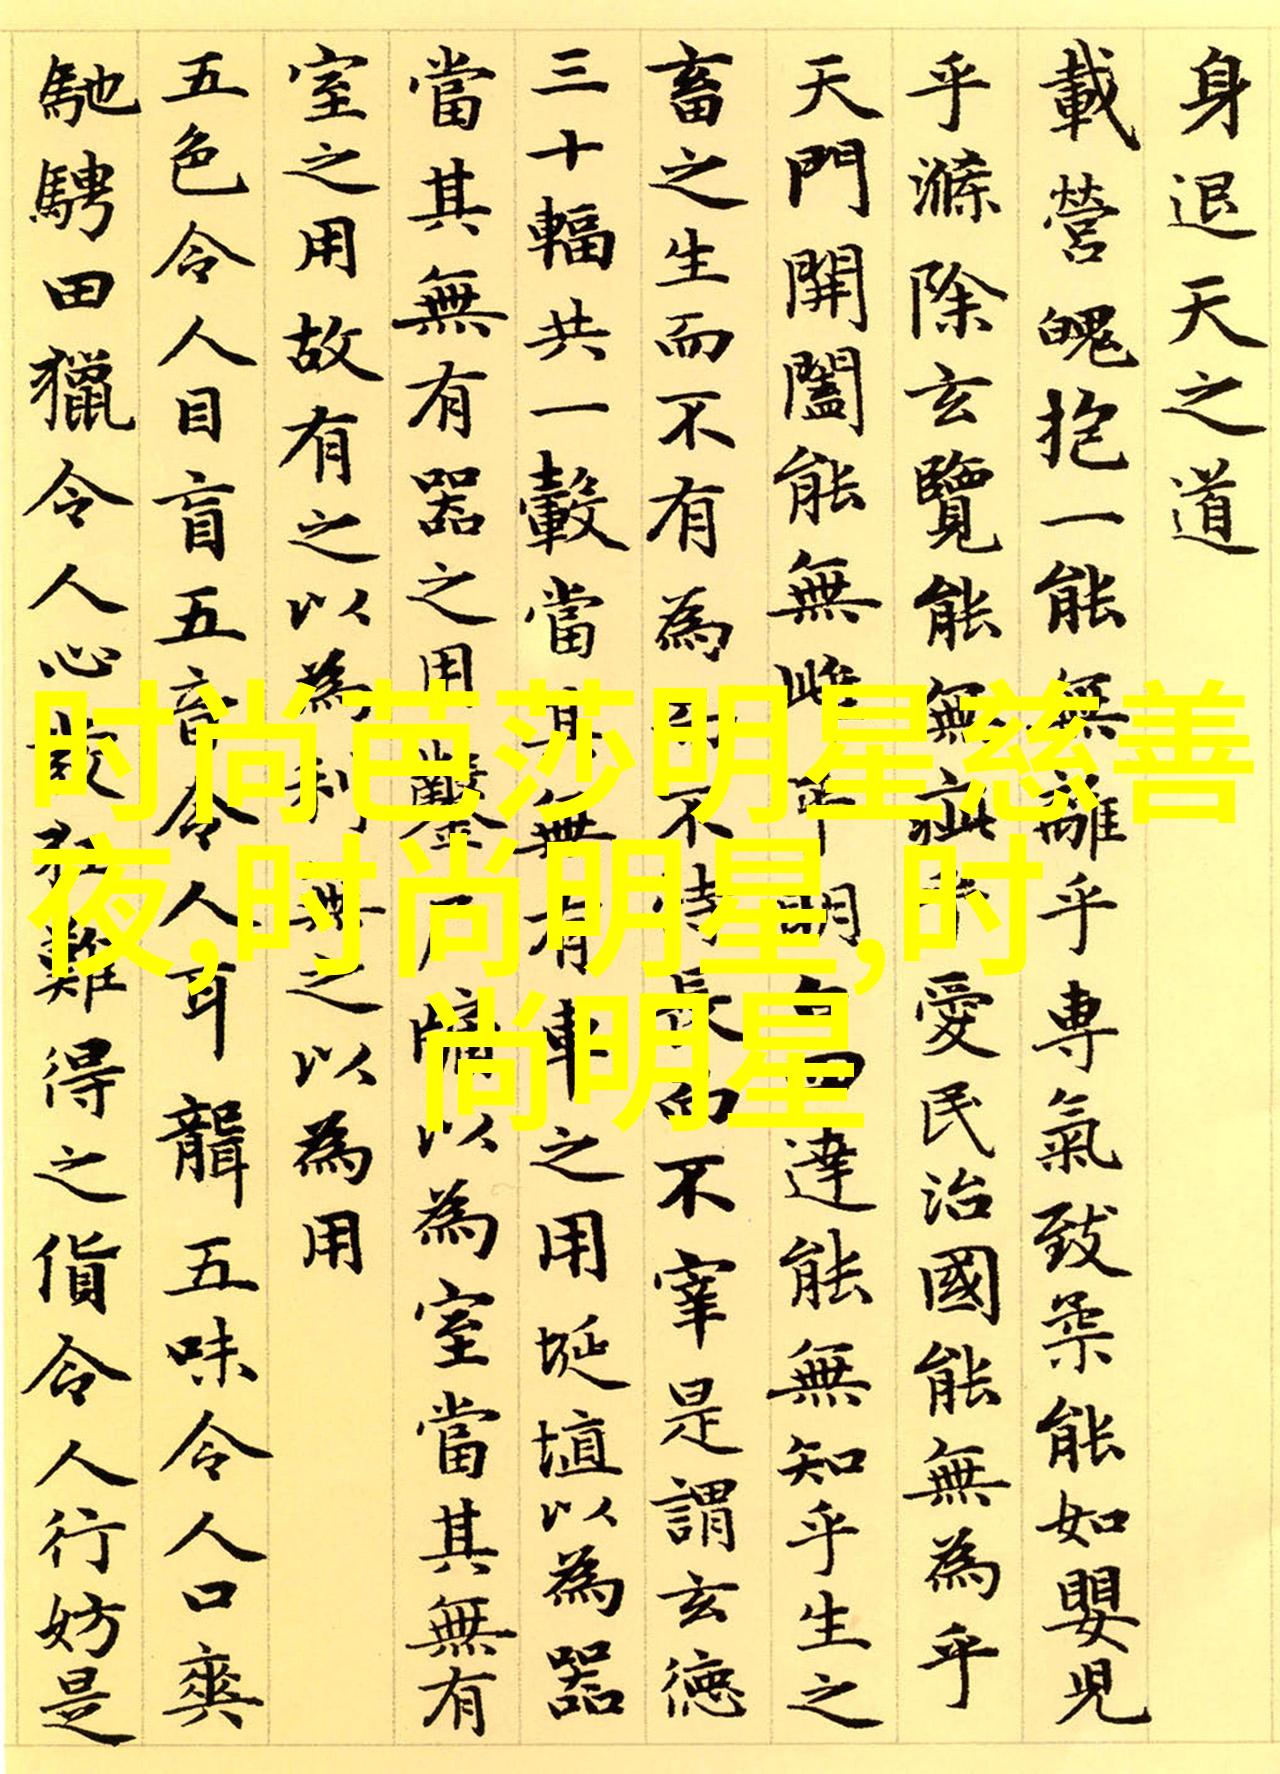 身退天之道
載營魄抱一能無離乎專氣致柔能如嬰兒
乎滌除玄覽能無疵乎愛民治國能無為乎
天門開闔能無雌乎明白四達能無知乎生之
畜之生而不有為而不恃長而不宰是謂玄德
三十輻共一轂當其無有車之用埏埴以為器
當其無有器之用鑿戶牖以為室當其無有
室之用故有之以為利無之以為用
五色令人目盲五音令人耳聾五味令人口爽
馳騁田獵令人心發狂難得之貨令人行妨是
时尚芭莎明星慈善
夜,时尚明星,时
尚明星